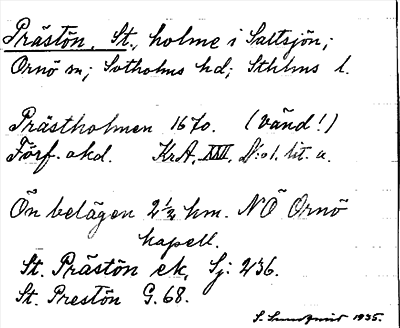 Prästön, St., holme i Saltsjön;
Ornö sn; Sotholms hd; Sthlms l.
Prästholmen 1670. (Vänd!)
Förf. okd. KrA, XXII, N:o 1. lit. a.
Ön belägen 2 1/2 km. NÖ Ornö
kapell.
St. Prästön ek, Sj: 236.
St. Prestön G. 68.
S. Lundqvist 1935.